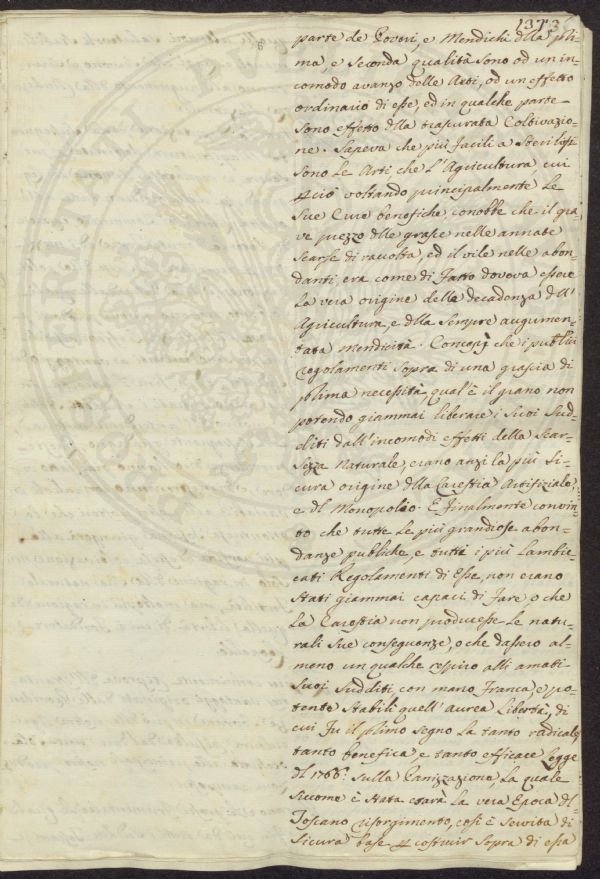 1373
parte de Poveri, e Mendichi dlla pri-
ma, e Seconda qualità sono od un in-
comodo avanzo delle Arti, od un effetto
ordinario di esse, ed in qualche parte
sono effetto dlla trascurata Coltivazio-
ne. Sapeva che più facili a
sono Le Arti, che L'Agricultura, cui
p ciò voltando principalmente Le
Sue Cure benefiche conobbe che il gra-
ve prezzo dlle grasce nelle annate
scarse di raccolta, ed il vile nelle abon-
danti, era come di fatto doveva essere
La vera origine della decadenza dll'
Agricultura, e dlla sempre augumen-
tata Mendicità. Concepì che i publici
regolamenti sopra di una grascia di
prima necessità, qual'è il grano non
potendo giammai liberare i Suoi Sud-
diti dall'incomodi effetti della Scar-
sezza Naturale, erano anzi La più Si-
cura origine dlla Carestia Artifiziale,
e dl Monopolio. E finalmente convin-
to che tutte Le più grandiose abon-
danze publiche, e tutti i più Lambic-
cati Regolamenti di Esse, non erano
Stati giammai capaci di fare, o che
La Carestia non producesse Le natu-
rali Sue conseguenze, o che dassero al-
meno un qualche respiro alli amati
Suoi Sudditi, con mano franca, e po-
tente Stabilì quell'aurea Libertà, di
cui fu il primo segno La tanto radicale,
tanto benefica, e tanto efficace Legge
dl 1766. Sulla Panizzazione, La quale
siccome è Stata La vera Epoca dl
Toscano risorgimento, così è Servita di
Sicura base p costruir sopra di essa